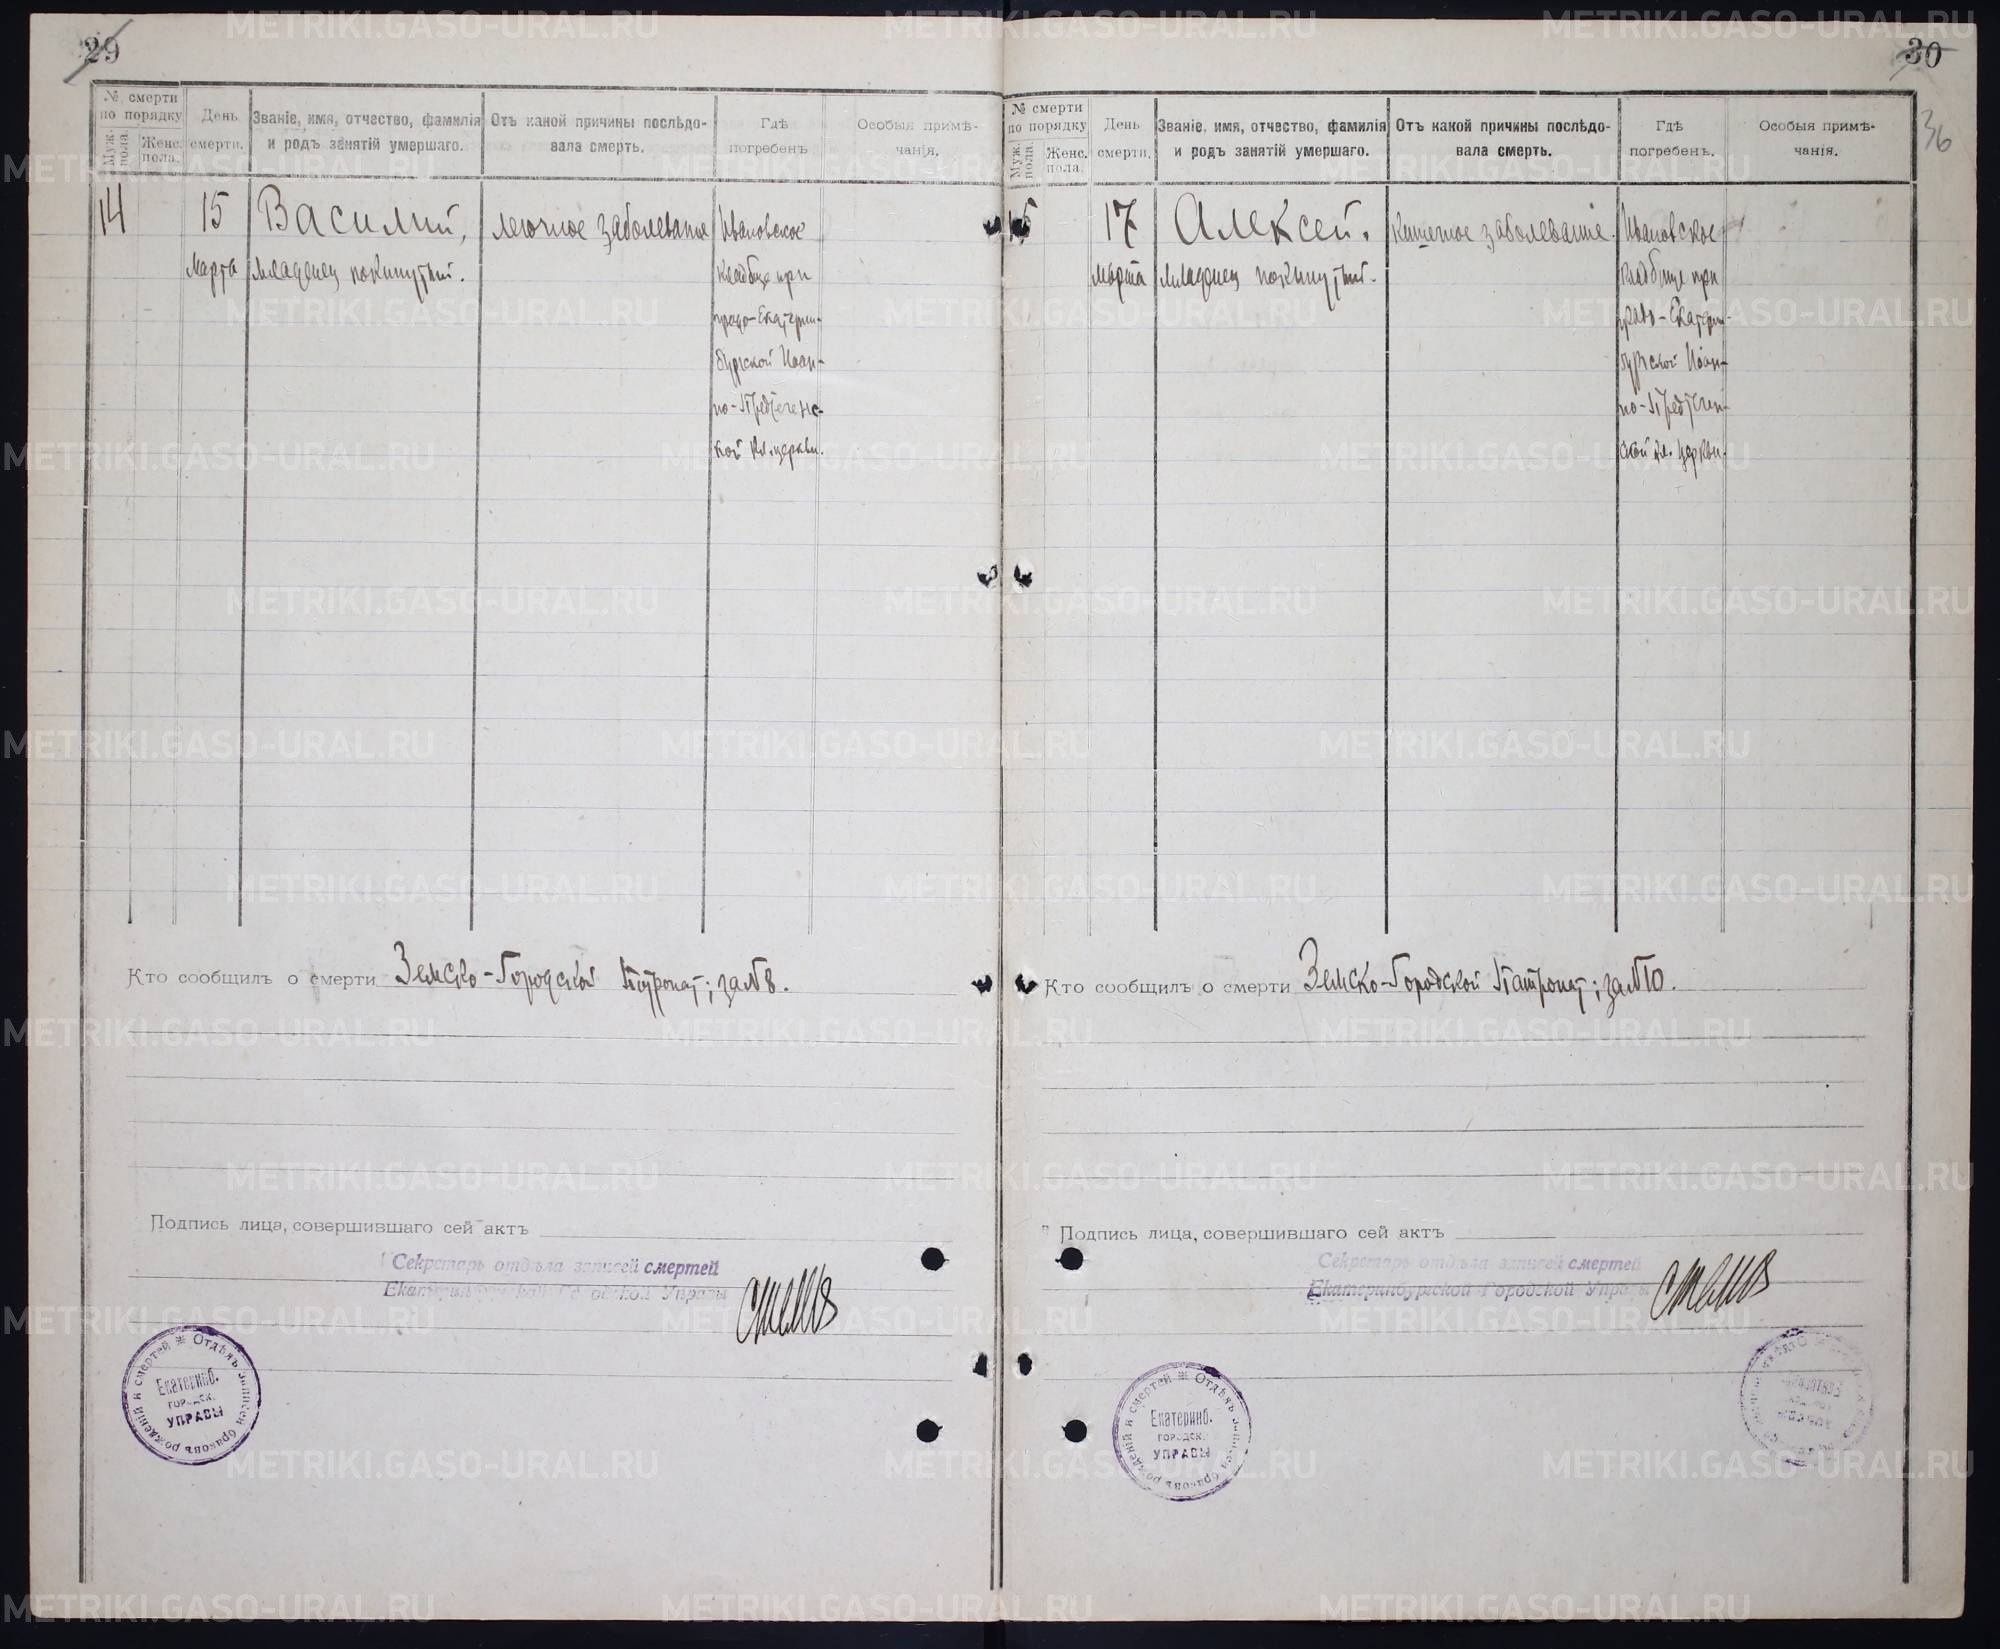 29
№ смерти
по порядку
Муж. пола.
Женс. пола.
День
смерти.
Званіе, имя, отчество, фамилія
и родъ занятій умершаго.
Отъ какой причины послѣдо-
вала смерть.
Гдѣ
погребенъ
Особыя примѣ-
чанія.
14
15
Марта
Василий,
младенец покинутый.
легочное заболевание
Ивановское
кладбище при
градо-Екатерин-
бургской Иоан-
но-Предтеченс-
кой кл. церкви.
Кто сообщилъ о смерти Земско-Городской Патронат; за № 8.
Подпись лица, совершившаго сей актъ
Секретарь отдѣла записей смертей
Екатеринбургской Городской Управы
Отдѣлъ записей браковъ рожденій и смертей
Екатеринб.
городск.
УПРАВЫ
30
36
№ смерти
по порядку
Муж. пола.
Женс. пола.
День
смерти.
Званіе, имя, отчество, фамилія
и родъ занятій умершаго.
Отъ какой причины послѣдо-
вала смерть.
Гдѣ
погребенъ.
Особыя примѣ-
чанія.
15
17
марта
Алексей.
младенец покинутый.
Кишечное заболевание.
Ивановское
кладбище при
градо-Екатерин-
бургской Иоан-
но-Предтечен-
ской кл. церкви.
Кто сообщилъ о смерти Земско-Городской Патронат; за № 10.
Подпись лица, совершившаго сей актъ
Секретарь отдѣла записей смертей
Екатеринбургской Городской Управы
Отдѣлъ записей браковъ рожденій и смертей
Екатеринб.
городск.
УПРАВЫ
METRIKI.GASO-URAL.RU